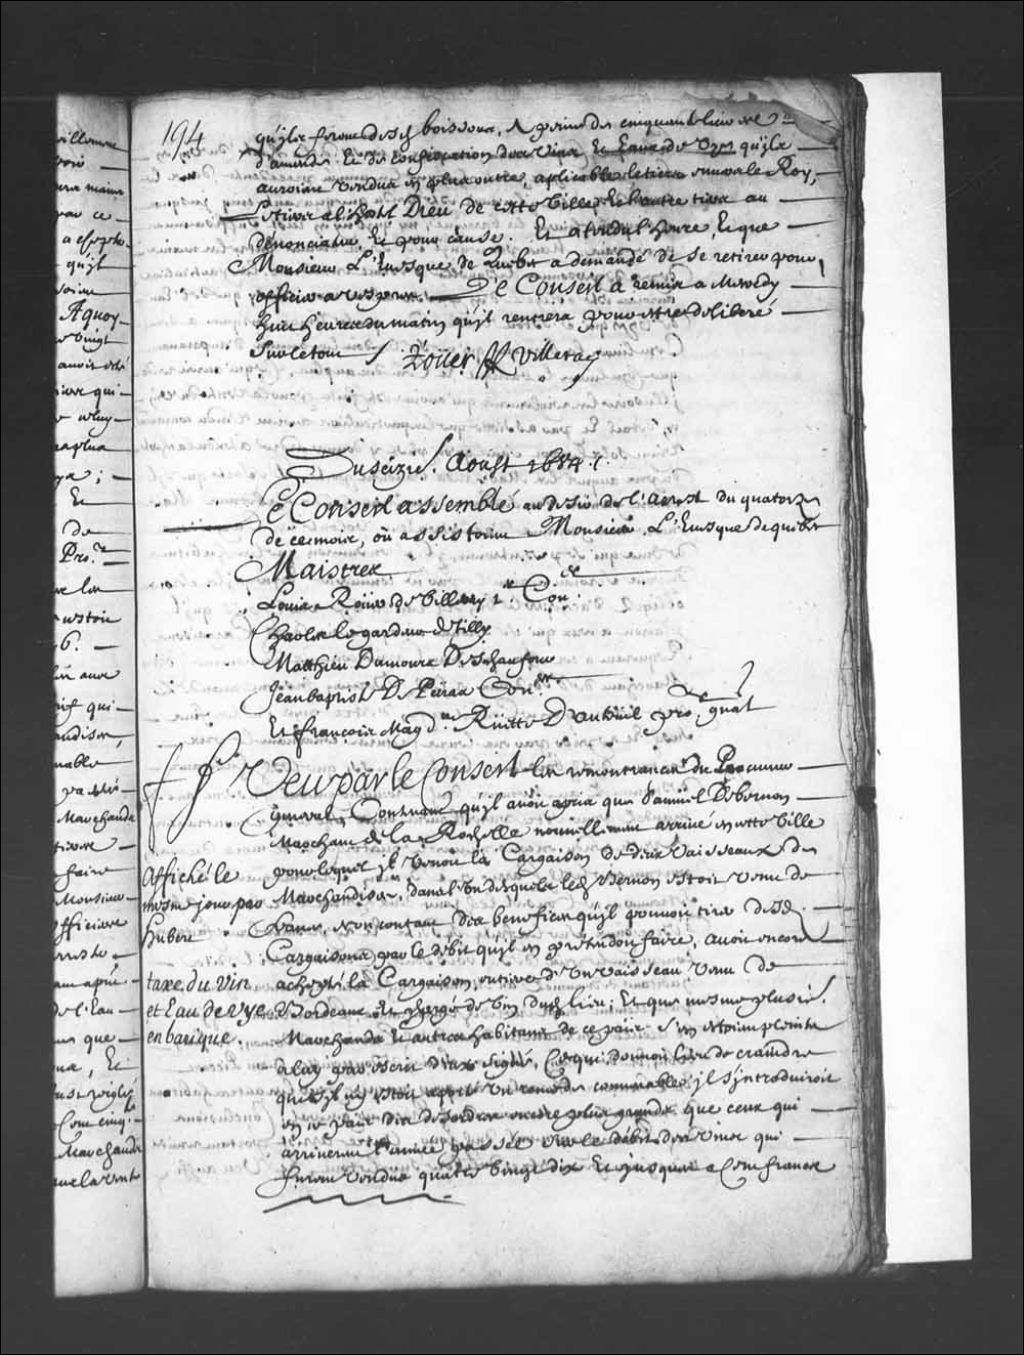 194
qu'jls feront desd. boissons, A peine de cinquante liures
d'amende Et de confiscation des vins Et Eaux de vye qu'jls
auroient vendus en plus outre, aplicable le tiers enuers le Roy,
le tiers a l'hostel Dieu de cette ville, Et l'autre tiers au
dénonciateur, Et pour cause. Et attendu l'heure, Et que
Monsieur L'Euesque de Quebec a demandé de se retirer pour
officier a vespres. Le Conseil a remis a Mercredy
huit heures du matin qu'jl rentrera pour estre deliberé
sur le tout
Roüer de Villeray
Du seizie. Aoust 1684.
Le Conseil assemblé au desir de l'arrest du quatorze
de ce mois, où assistoient Monsieur L'Euesque de quebec
Maistres
Louis Roüer de Villeray 1er. Con.er
Charles le gardeur de Tilly
Matthieu Damours Deschaufour
Jean baptiste De Peiras Con.ers
Et françois Magd.ne Rüette D'auteüil pro.r gnal
Veu par le Conseil les remonstrances du Procureur
General, Contenant qu'jl auoit apris que Samuel De bernon
Marchant de la Rochelle nouuellement arriué en cette ville
pour lequel jl venoit la Cargaison de deux vaisseaux de
Marchandises, dans l'un desquels led. Bernon estoit venu de
france, Non contant des benefices qu'jl pouuoit tirer desd.
Cargaisons par le débit qu'jl en prétendoit faire, auoit encore
achepté la Cargaison entiere d'un vaisseau venu de
Bordeaux et chargé de vin dud. lieu; Et que mesme plusie.
Marchands Et autres habitans de ce païs s'en estoient plaints
a luy par escrit d'eux signé, Ce qui donnoit lieu de craindre
que s'jl n'y estoit aporté un remede conuenable jl s'introduiroit
en ce païs des desordres encore plus grands que ceux qui
arriuerent l'année passée sur le débit des vins qui
furent vendus quatre vingt dix Et jusques a Cent francs
Affiché le
mesme jour par
hubert
taxe du vin
et Eau de vye
en barique.